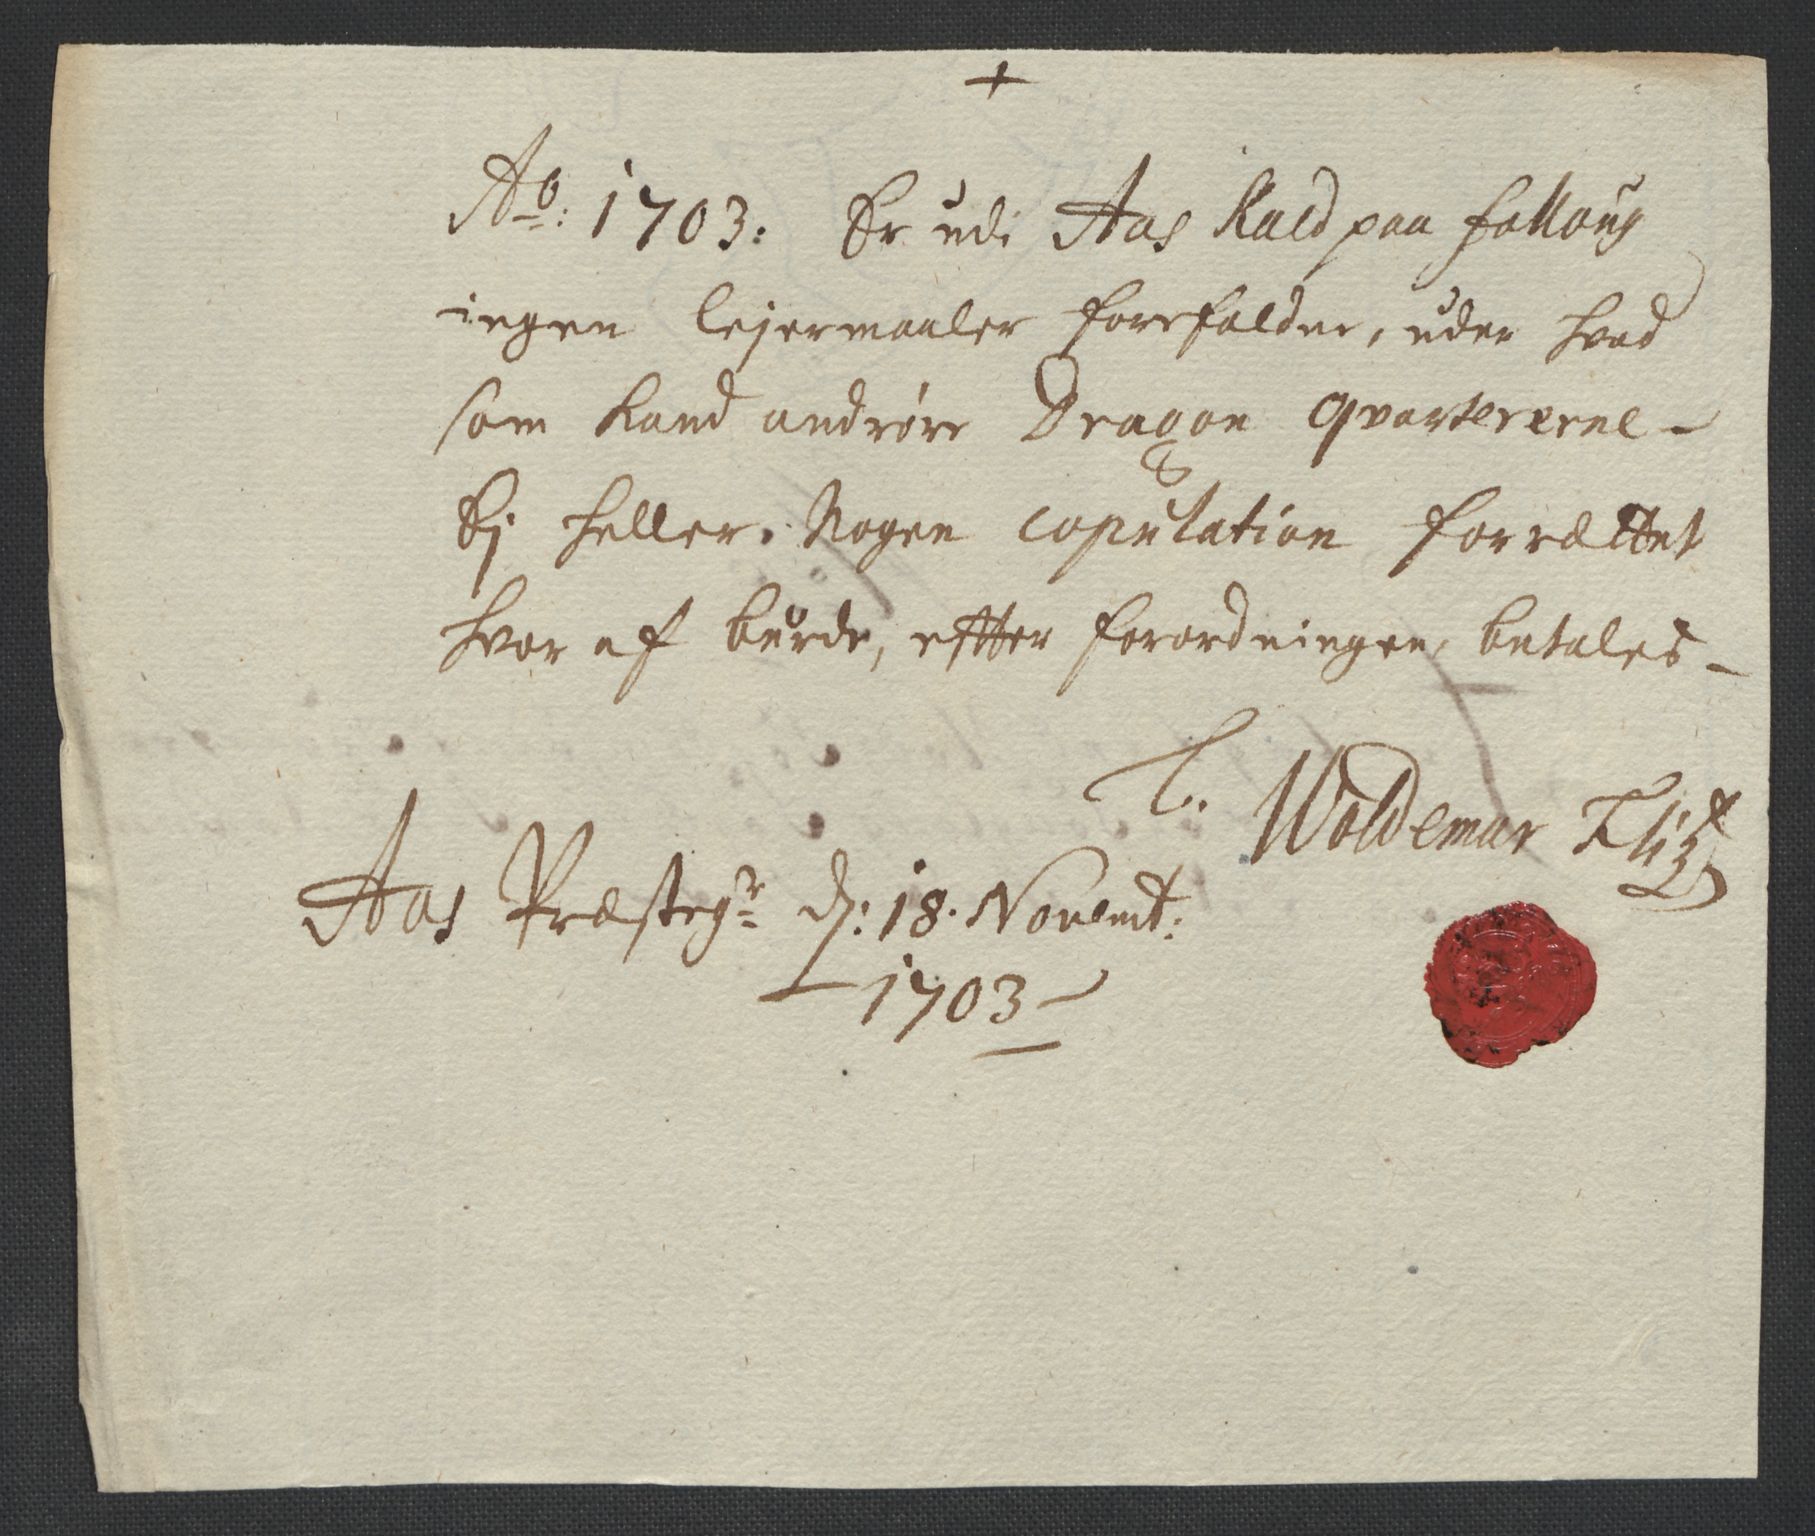 +
Ao: 1703: Er udi Aas Kald paa folloug
ingen lejermaaler forefalden, uden hvad
som kand andrøre Dragon qvartererne -
Ej heller Nogen copulation forrættet
hvor af burde, effter forordningen, betales -
T. Woldemar
Aas Præstegr d: 18. Novembr:
- 1703 -